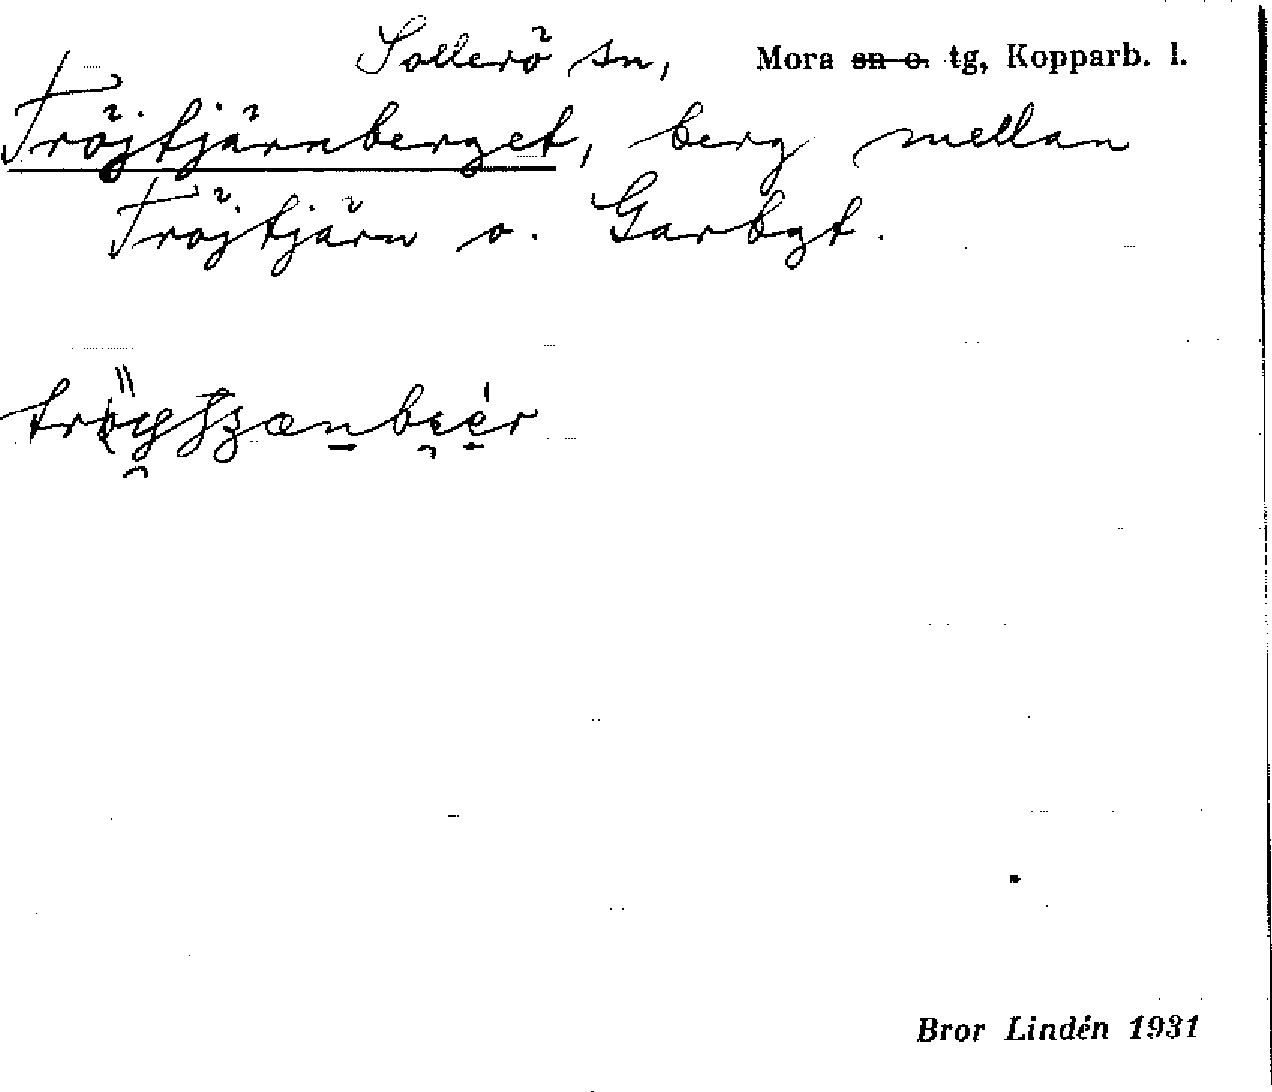 Sollerö sn, Mora sn o. tg, Kopparb. l.
Tröjtjärnberget, berg mellan
Tröjtjärn o. Garbgt.
Bror Lindén 1931